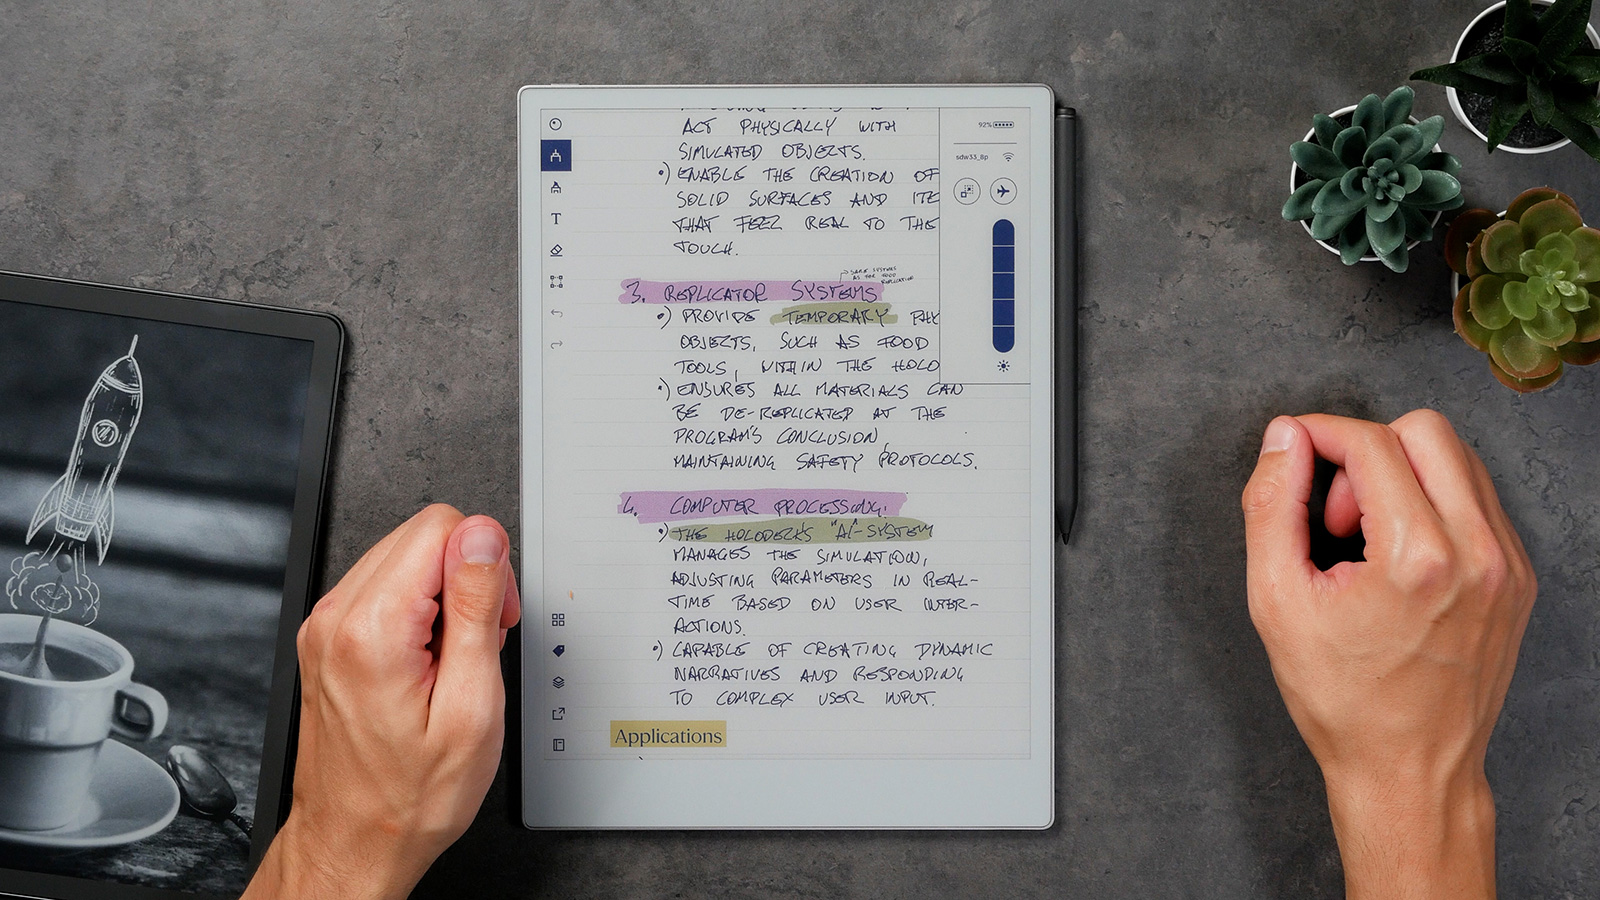 ACT PHYSICALLY WITH
SIMULATED OBJECTS.
•) ENABLE THE CREATION OF
SOLID SURFACES AND ITE
THAT FEEL REAL TO THE
TOUCH.
SAME SYSTEMS
AS THE FOOD
REPLICATION
3. REPLICATOR SYSTEMS
•) PROVIDE TEMPORARY PHY
OBJECTS, SUCH AS FOOD
TOOLS, WITHIN THE HOLO
•) ENSURES ALL MATERIALS CAN
BE DE-REPLICATED AT THE
PROGRAM'S CONCLUSION,
MAINTAINING SAFETY PROTOCOLS.
4. COMPUTER PROCESSING:
•) THE HOLODECK'S "AI"-SYSTEM
MANAGES THE SIMULATION,
ADJUSTING PARAMETERS IN REAL-
TIME BASED ON USER INTER-
ACTIONS.
•) CAPABLE OF CREATING DYNAMIC
NARRATIVES AND RESPONDING
TO COMPLEX USER INPUT.
Applications
92%
sdw33_8p
T